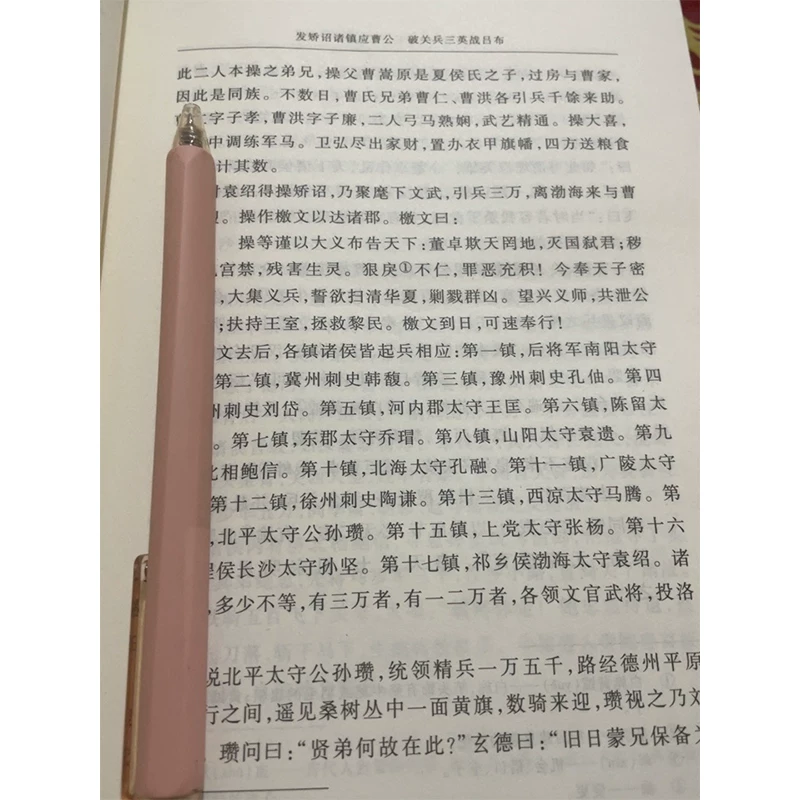 发矫诏诸镇应曹公 破关兵三英战吕布
此二人本操之弟兄，操父曹嵩原是夏侯氏之子，过房与曹家，
因此是同族。不数日，曹氏兄弟曹仁、曹洪各引兵千馀来助。
字子孝，曹洪字子廉，二人弓马熟娴，武艺精通。操大喜，
中调练军马。卫弘尽出家财，置办衣甲旗幡，四方送粮食
计其数。
袁绍得操矫诏，乃聚麾下文武，引兵三万，离渤海来与曹
。操作檄文以达诸郡。檄文曰：
操等谨以大义布告天下：董卓欺天罔地，灭国弑君；秽
宫禁，残害生灵。狼戾①不仁，罪恶充积！今奉天子密
，大集义兵，誓欲扫清华夏，剿戮群凶。望兴义师，共泄公
；扶持王室，拯救黎民。檄文到日，可速奉行！
文去后，各镇诸侯皆起兵相应：第一镇，后将军南阳太守
第二镇，冀州刺史韩馥。第三镇，豫州刺史孔伷。第四
州刺史刘岱。第五镇，河内郡太守王匡。第六镇，陈留太
。第七镇，东郡太守乔瑁。第八镇，山阳太守袁遗。第九
北相鲍信。第十镇，北海太守孔融。第十一镇，广陵太守
第十二镇，徐州刺史陶谦。第十三镇，西凉太守马腾。第
，北平太守公孙瓒。第十五镇，上党太守张杨。第十六
程侯长沙太守孙坚。第十七镇，祁乡侯渤海太守袁绍。诸
，多少不等，有三万者，有一二万者，各领文官武将，投洛
说北平太守公孙瓒，统领精兵一万五千，路经德州平原
行之间，遥见桑树丛中一面黄旗，数骑来迎，瓒视之乃
瓒问曰：“贤弟何故在此？”玄德曰：“旧日蒙兄保备